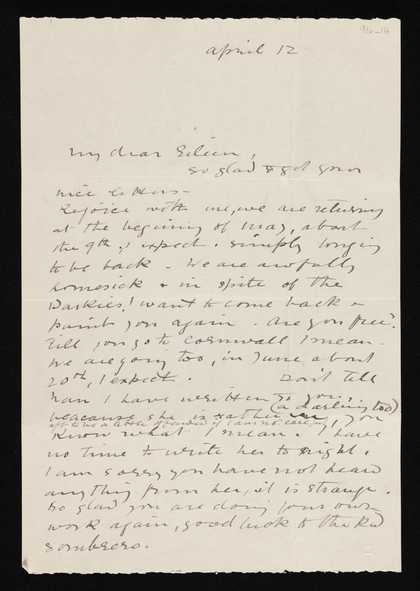 April 12
My dear Eileen,
So glad to get your
nice letters -
Rejoice with me, we are returning
at the begining of May, about
the 9th, I expect. Simply longing
to be back - We are awfully
homesick & in spite of the
Darkies! want to come back &
paint you again. Are you free?
till you go to Cornwall I mean.
We are going too, in June about
20th, I expect. Don't tell
Nan I have written to you
(a darling too)
beacause she is rather
, you
know what I mean. I have
no time to write her to night.
I am sorry you have not heard
anything from her, it is strange.
So glad you are doing your own
work again, good luck to the Red
Sombrero.